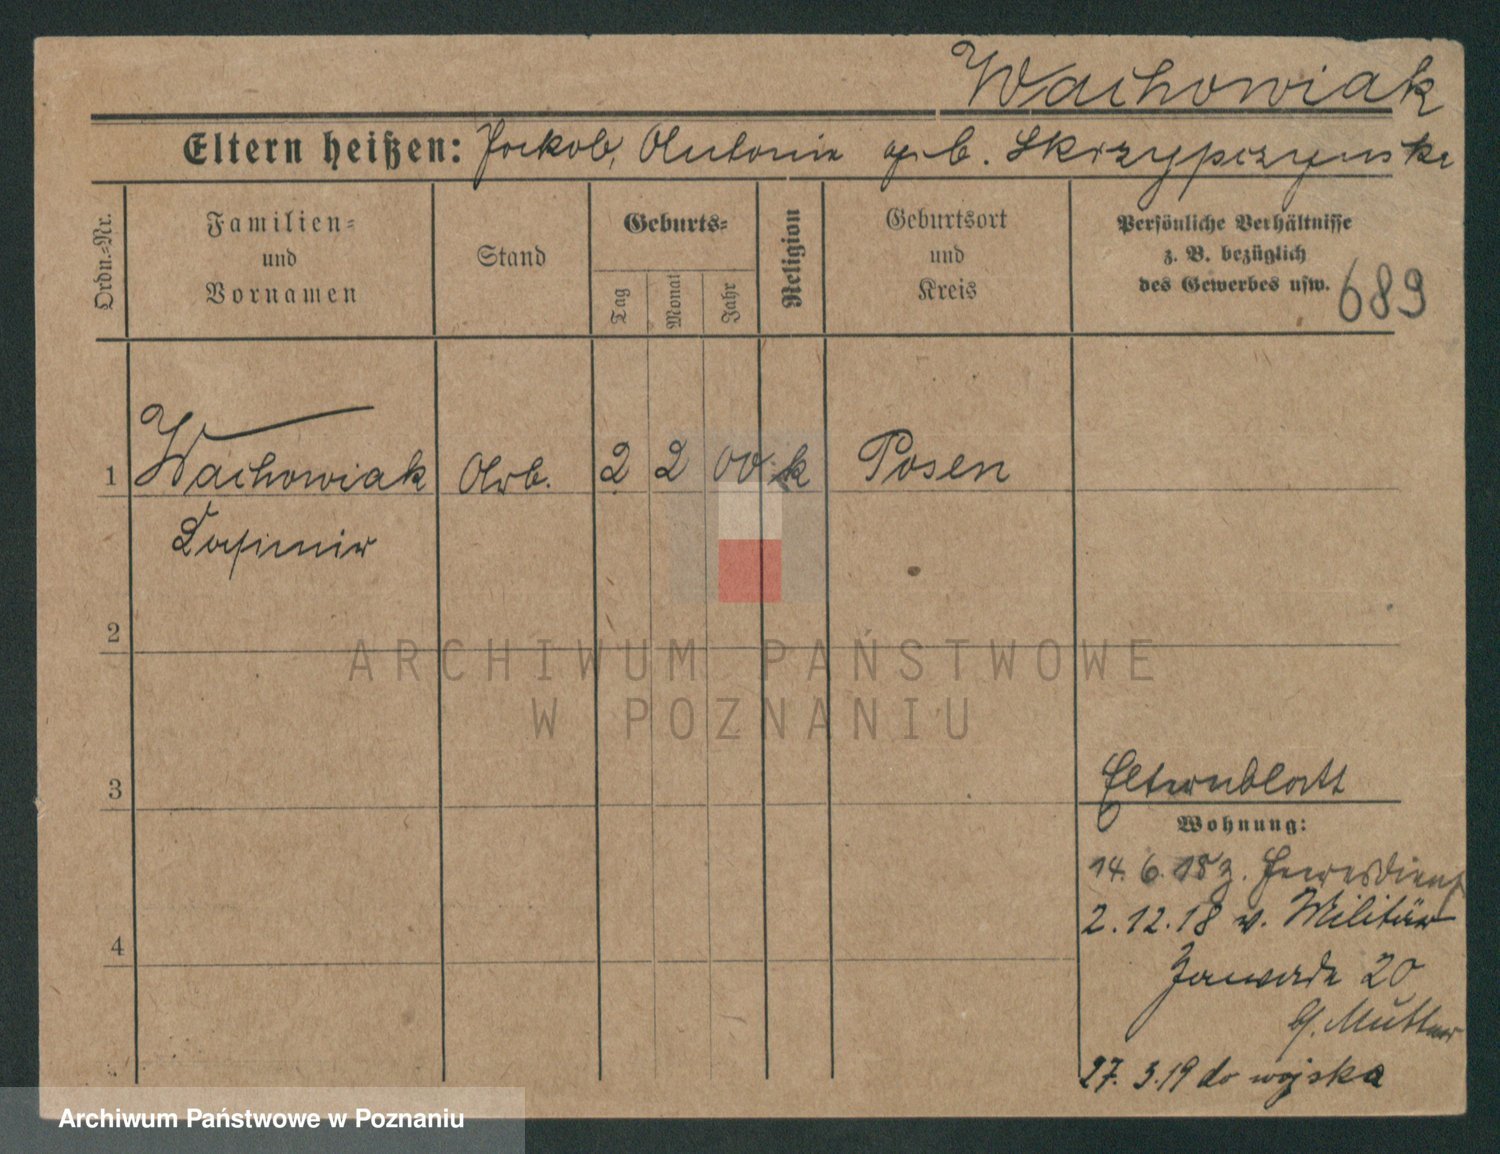 Wachowiak
Eltern heißen: Jakob, Antonie geb. Skrzypczynska
Ordn.-Nr.
Familien-
und
Vornamen
Stand
Geburts-
Tag
Monat
Jahr
Religion
Geburtsort
und
Kreis
Persönliche Verhältnisse
z. B. bezüglich
des Gewerbes usw.
689
1 Wachowiak Arb. 2 2 00 k Posen
Casimir
2
3
4
Elternblatt
Wohnung:
14. 6. 18 z. Heeresdienst
2. 12. 18 v. Militär
20
b/. Mutter
27. 3. 19 do wojska
ARCHIWUM PAŃSTWOWE
W POZNANIU
Archiwum Państwowe w Poznaniu